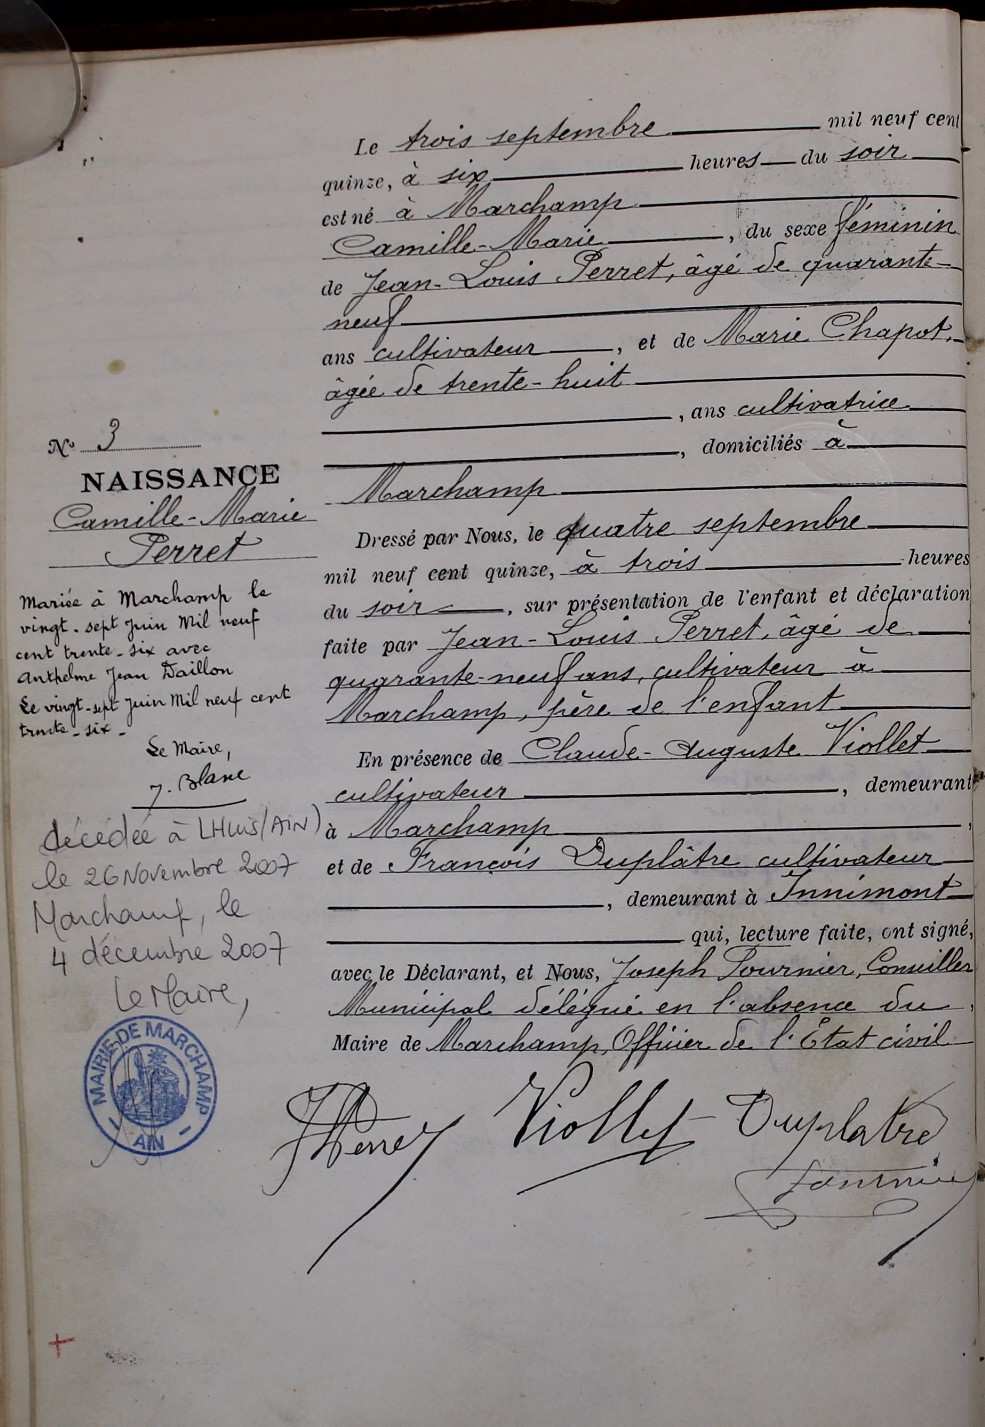 Le trois septembre mil neuf cent
quinze, à six heures du soir
est né à Marchamp
Camille-Marie, du sexe féminin
de Jean-Louis Perret, âgé de quarante-
neuf
ans cultivateur, et de Marie Chapot,
âgée de trente-huit
, ans cultivatrice
, domiciliés à
Marchamp
Dressé par Nous, le quatre septembre
mil neuf cent quinze, à trois heures
du soir, sur présentation de l'enfant et déclaration
faite par Jean-Louis Perret, âgé de
quarante-neuf ans, cultivateur à
Marchamp, père de l'enfant
En présence de Claude-Auguste Viollet
cultivateur, demeurant
à Marchamp,
et de François Duplâtre cultivateur
, demeurant à Innimont
qui, lecture faite, ont signé,
avec le Déclarant, et Nous, Joseph Fournier, Conseiller
Municipal délégué en l'absence du
Maire de Marchamp, Officier de l'État civil
N° 3
NAISSANCE
Camille-Marie
Perret
Mariée à Marchamp le
vingt-sept Juin Mil neuf
cent trente-six avec
Anthelme Jean Daillon
Le vingt-sept Juin Mil neuf cent
trente-six-
Le Maire,
J. Blanc
décédée à LHUIS (AIN)
le 26 Novembre 2007
Marchamp, le
4 décembre 2007
Le Maire,
MAIRIE DE MARCHAMP
- AIN -
JLPerret Viollet Duplatre
Fournier